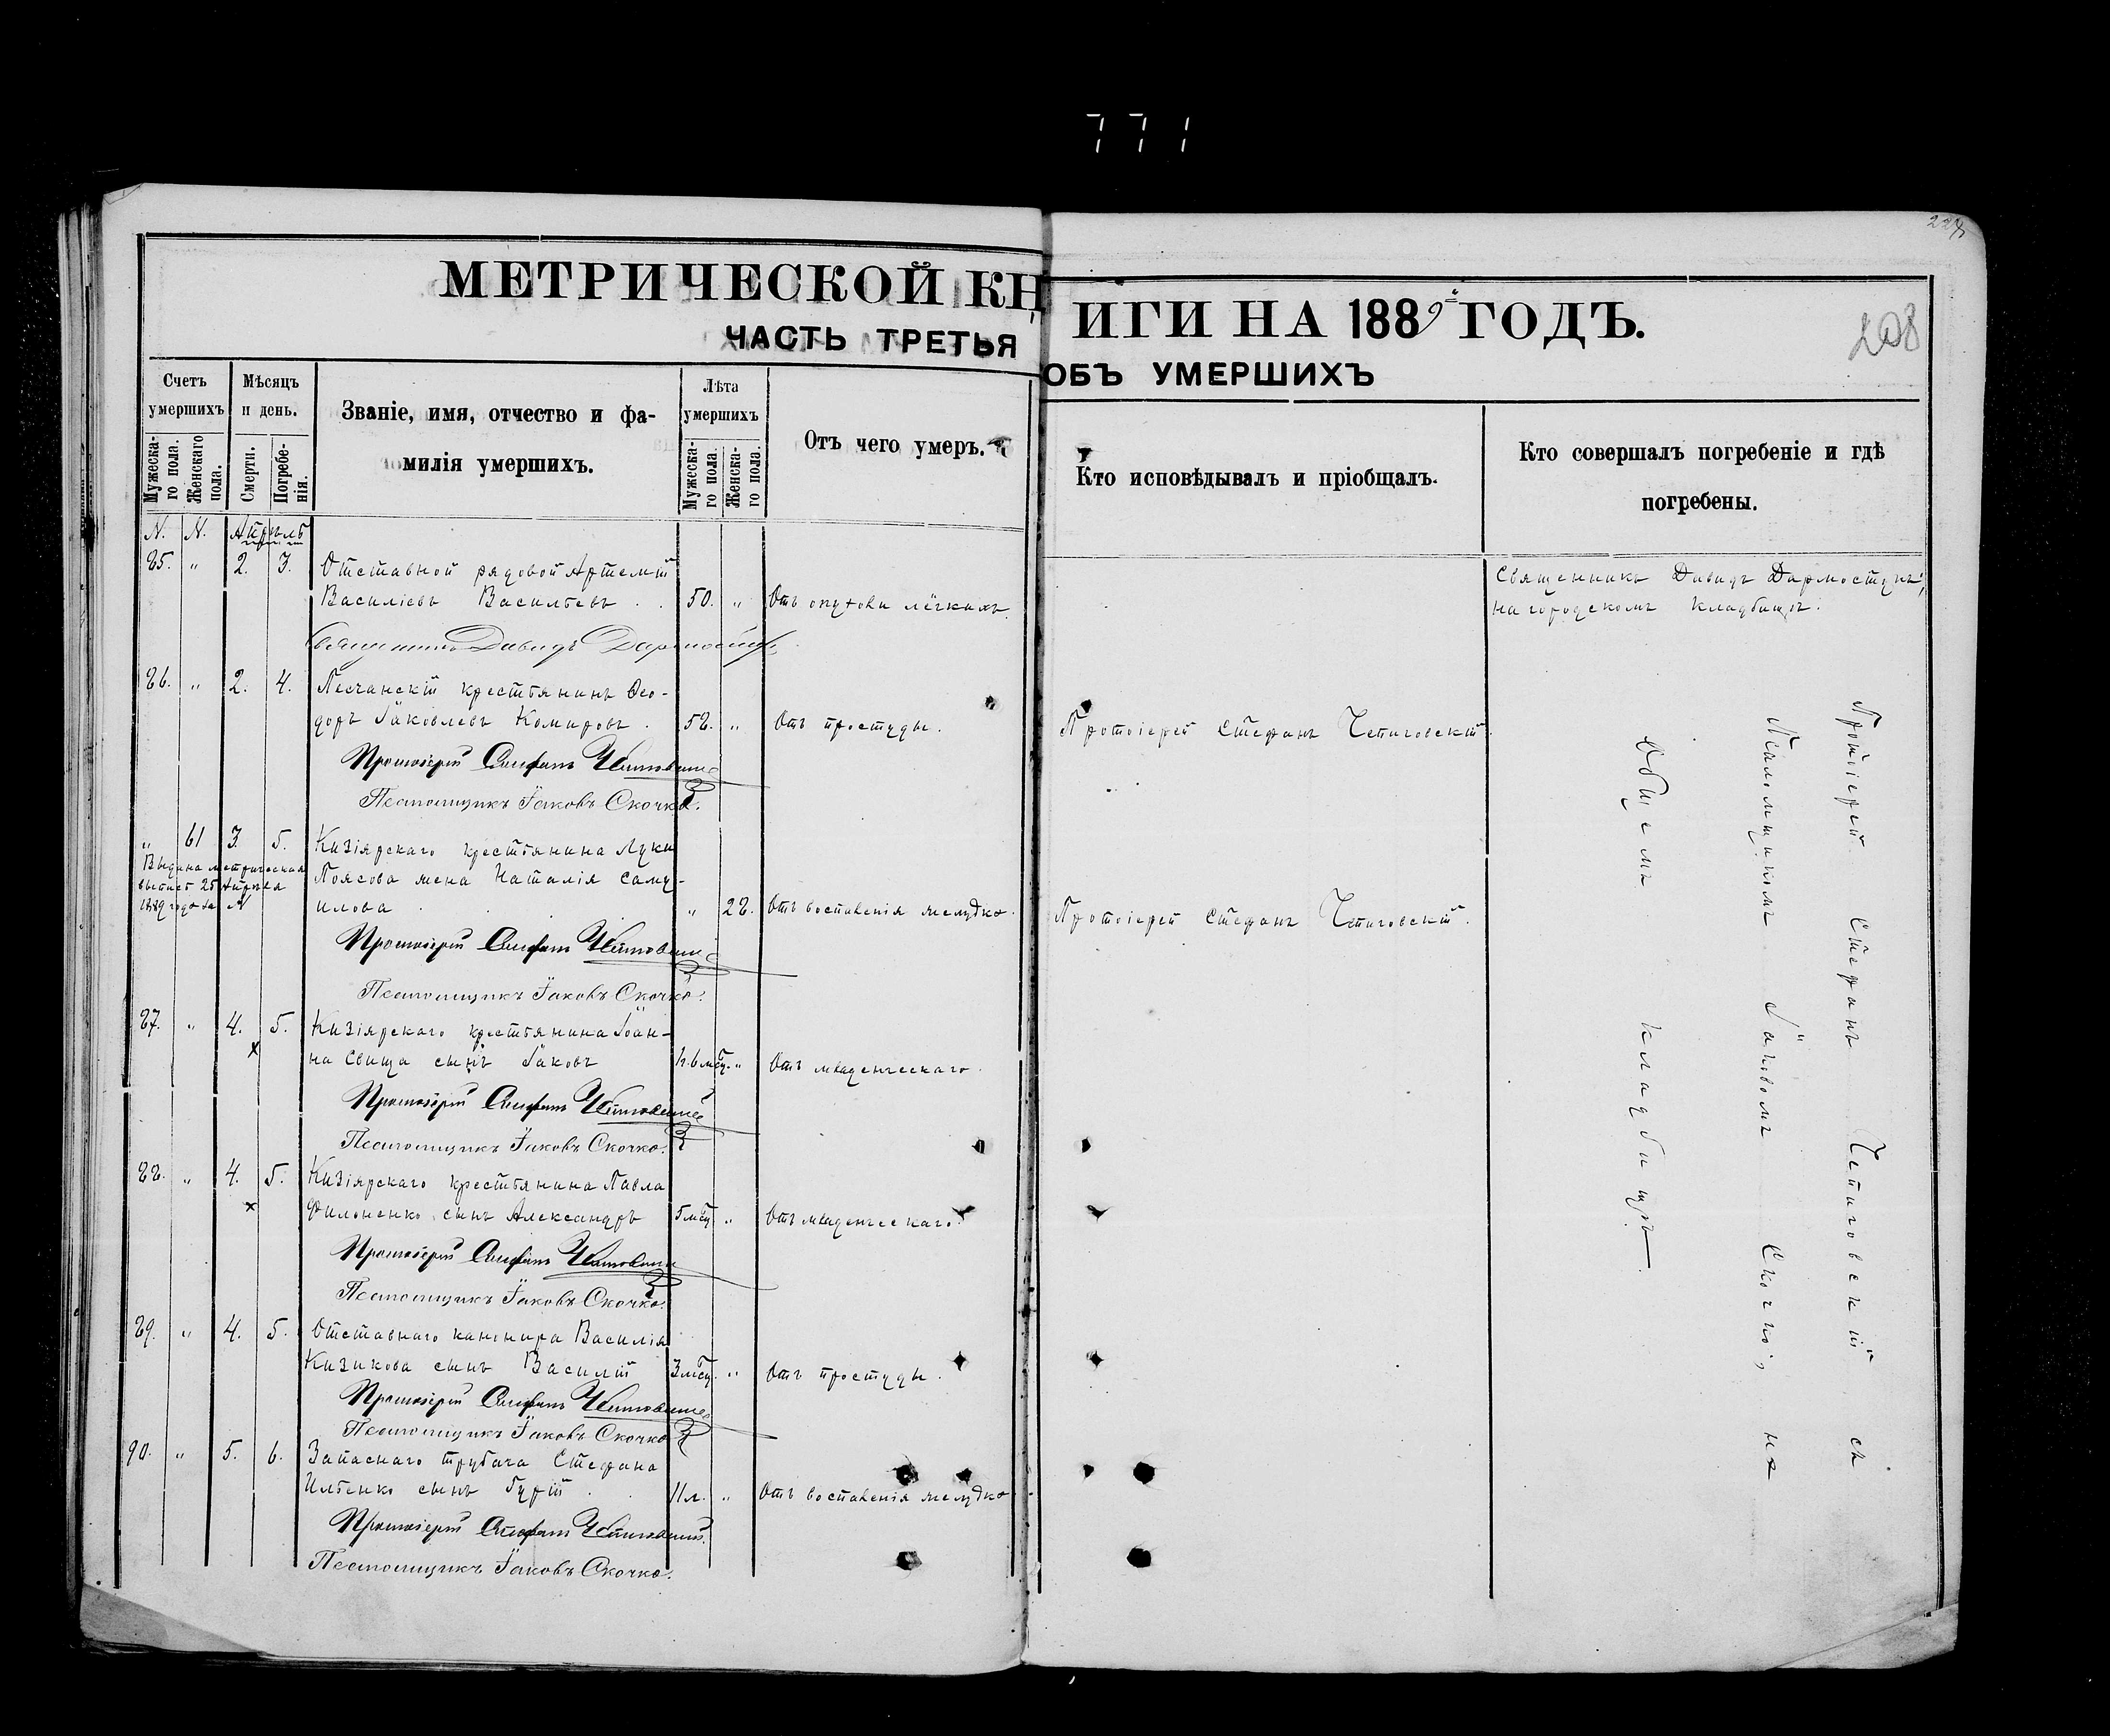 771
228
МЕТРИЧЕСКОЙ КНИГИ НА 1889 ГОДЪ.
208
ЧАСТЬ ТРЕТЬЯ ОБЪ УМЕРШИХЪ
Счетъ умершихъ
Мужеска-го пола.
Женскаго пола.
Мѣсяцъ и день.
Смерти.
Погребе-нія.
Званіе, имя, отчество и фа-
милія умершихъ.
Лѣта умершихъ
Мужеска-го пола.
Женска-го пола.
Отъ чего умеръ.
Кто исповѣдывалъ и пріобщалъ.
Кто совершалъ погребеніе и гдѣ
погребены.
N. N. Апрѣль
85. „ 2. 3. Отставной рядовой Артемій
Василіевъ Васильевъ . . 50. „ Отъ опухоли лёгкихъ.
Священникъ Давидъ Дармостукъ,
на городскомъ кладбищѣ.
Священникъ Давидъ Дармостукъ
86. „ 2. 4. Песчанскій крестьянинъ Ѳео-
доръ Іаковлевъ Комировъ . 58. „ Отъ простуды. Протоіерей Стефанъ Чепиговскій.
Протоіерей Стефанъ Чепиговскій
Псаломщикъ Іаковъ Скочко.
„ 61 3. 5. Кизіярскаго крестьянина Луки
Выдана метрическая
выпись 25 Апрѣля
1889 года за №
Поясова жена Наталія Саму-
илова . . . „ 28. Отъ воспаленія желудка. Протоіерей Стефанъ Чепиговскій.
Протоіерей Стефанъ Чепиговскій
Псаломщикъ Іаковъ Скочко.
87. „ 4. 5. Кизіярскаго крестьянина Іоан-
на Свища сынъ Іаковъ 1г.6мсц. „ Отъ младенческаго.
Протоіерей Стефанъ Чепиговскій
Псаломщикъ Іаковъ Скочко.
88. „ 4. 5. Кизіярскаго крестьянина Павла
Филоненко сынъ Александръ 5мсц „ Отъ младенческаго.
Протоіерей Стефанъ Чепиговскій
Псаломщикъ Іаковъ Скочко.
89. „ 4. 5. Отставнаго канонира Василія
Кизикова сынъ Василій 3мсц. „ Отъ простуды.
Протоіерей Стефанъ Чепиговскій
Псаломщикъ Іаковъ Скочко
90. „ 5. 6. Запаснаго трубача Стефана
Ильенко сынъ Гурій . . 11л. „ Отъ воспаленія желудка.
Протоіерей Стефанъ Чепиговскій.
Псаломщикъ Іаковъ Скочко.
Протоіерей Стефанъ Чепиговскій съ
Псаломщикомъ Іаковомъ Скочко, на
Общемъ кладбищѣ.